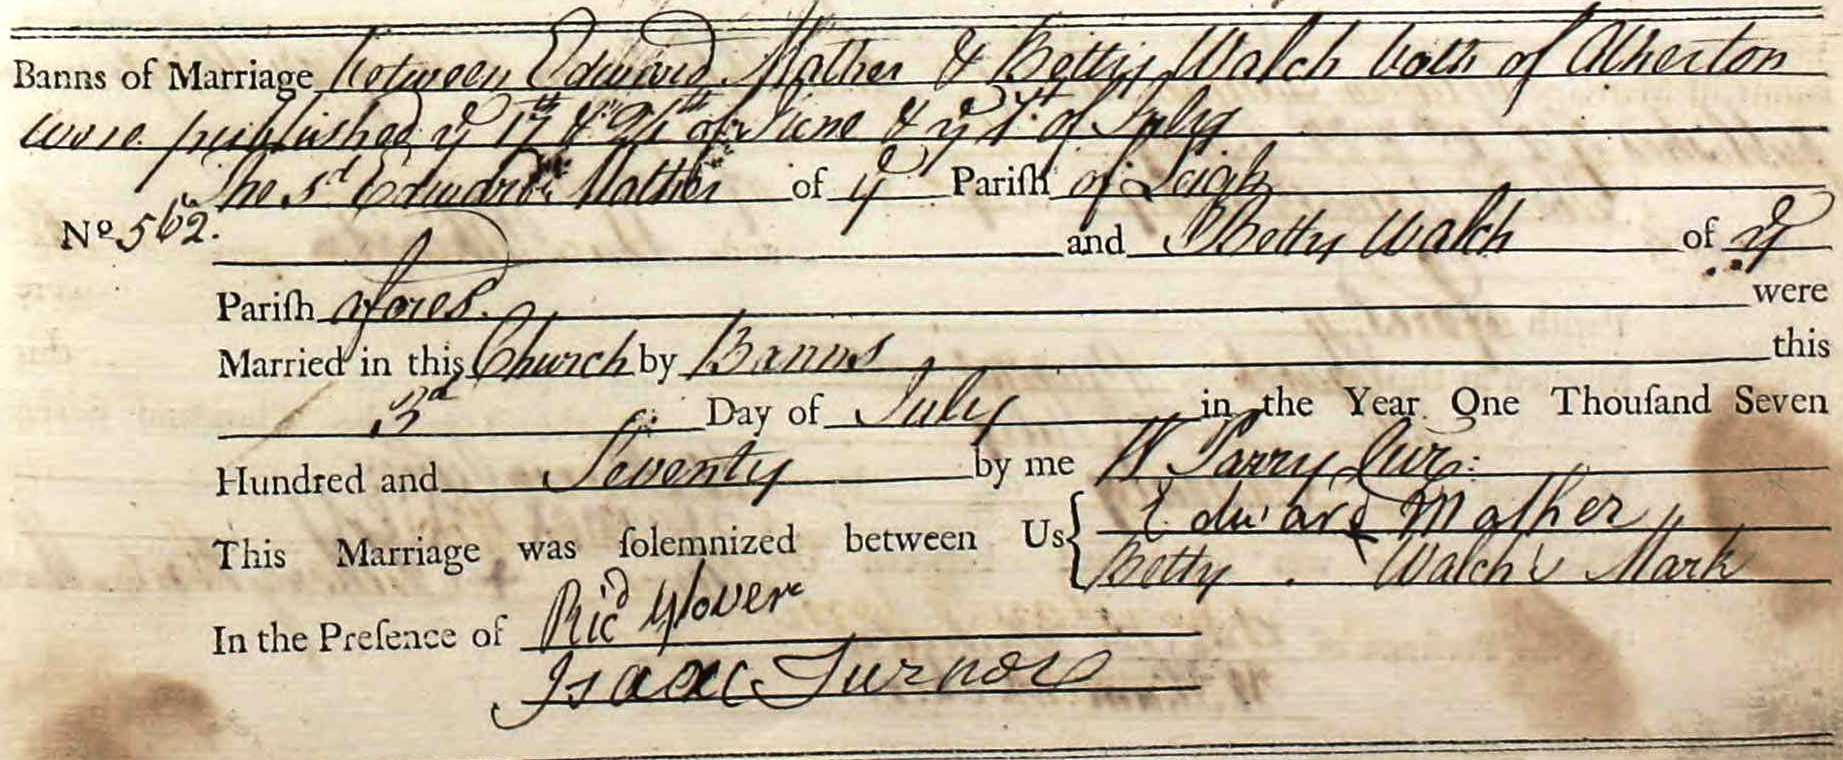 Banns of Marriage between Edward Mather & Betty Walch both of Atherton
were published ye 17th & 24th of June & ye 1st of July
The sd Edward Mather of ye Pariſh of Leigh
No 562. and Betty Walch of ye
Pariſh afores.
were
Married in this Church by Banns this
3d Day of July in the Year One Thouſand Seven
Hundred and Seventy by me W Parry Cur:
This Marriage was ſolemnized between Us { Edward Mather
Betty Walch's Mark
In the Preſence of Ricd Glover
Isaac Turnor